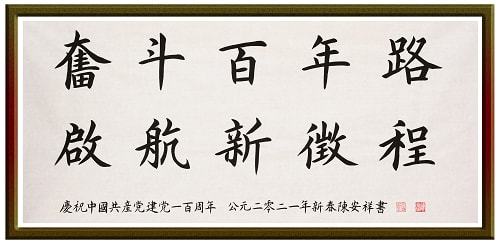 奮斗百年路
啟航新徵程
慶祝中國共産党建党一百周年 公元二零二一年新春陳安祥書